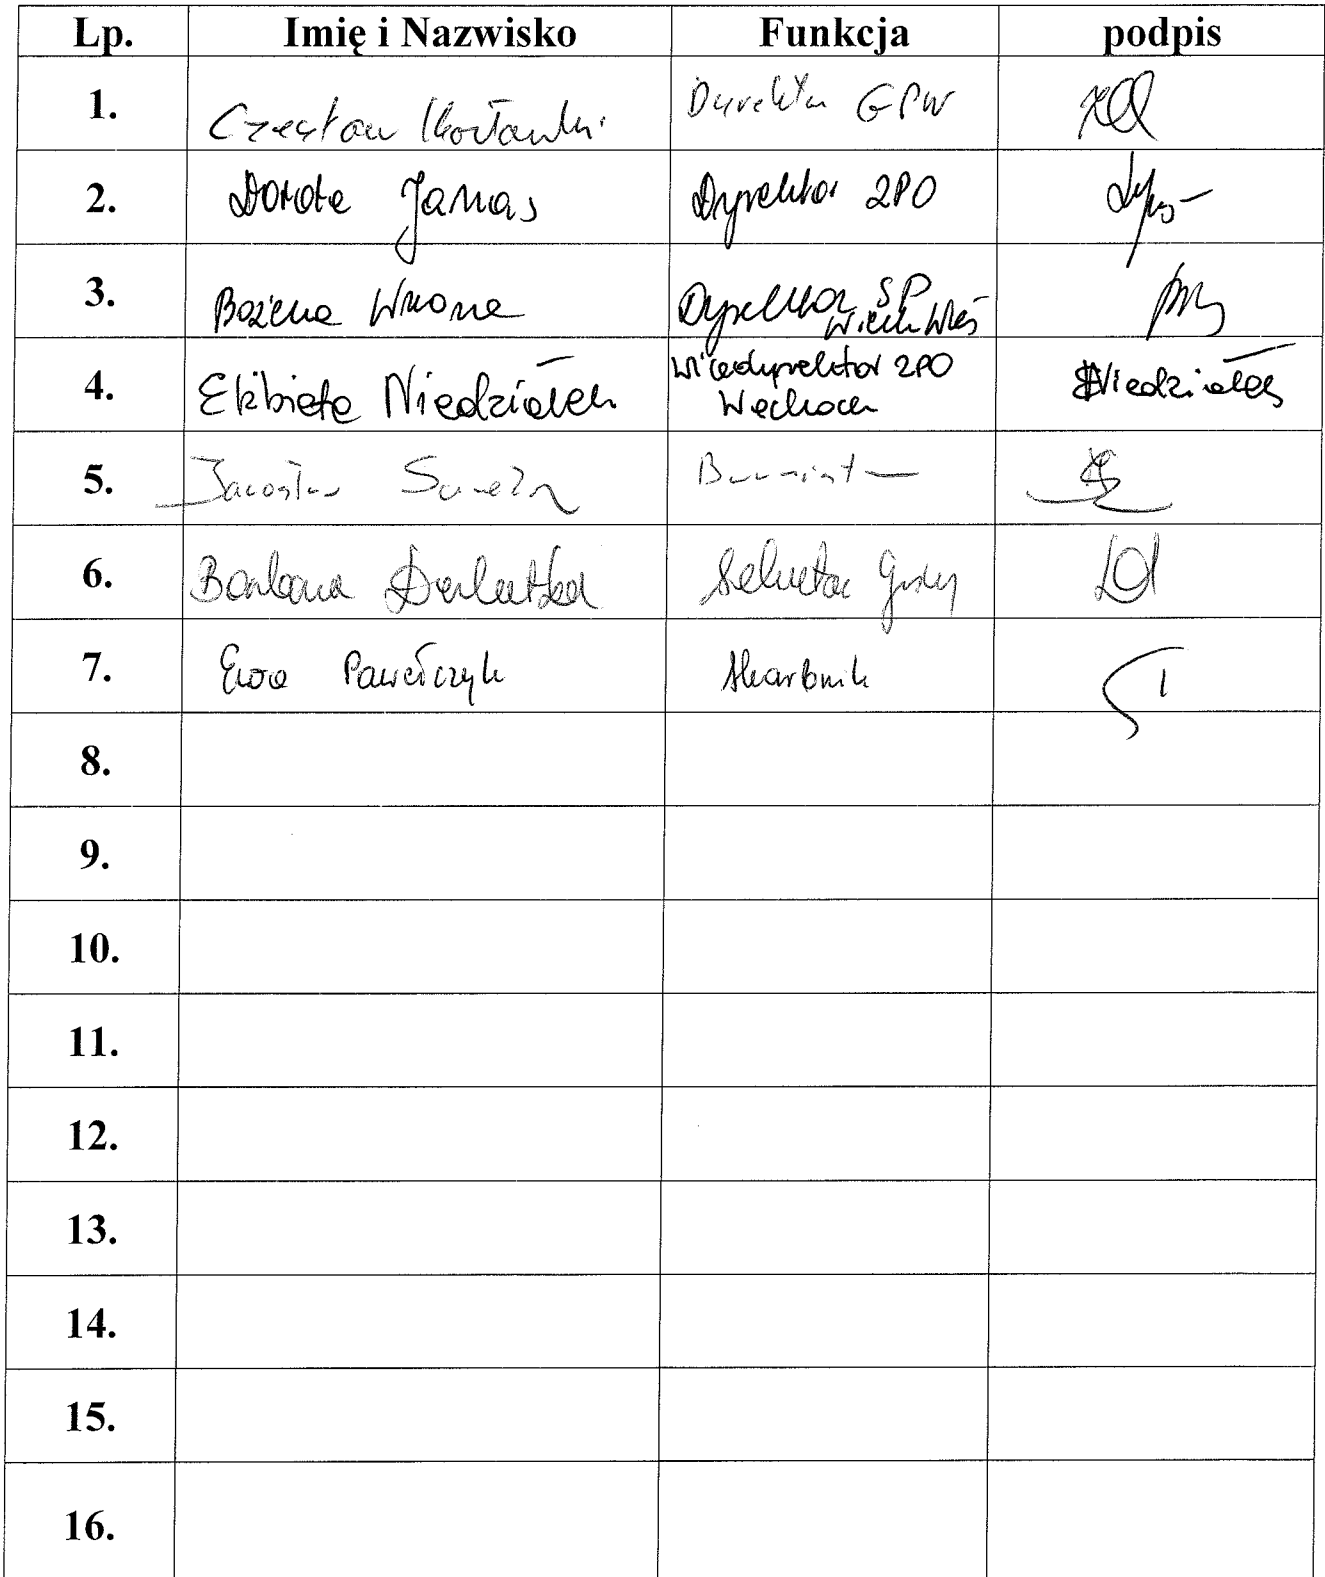 Lp. Imię i Nazwisko Funkcja podpis
1. Czesław Dyrektor GPW
2. Dorota Janas Dyrektor ZPO
3. Bożena Wrona Dyrektor SP
Wielk Wieś
4. Elżbieta Niedziałek Wicedyrektor ZPO
Wąchock Niedziałek
5. Jarosław Samela Burmistrz
6. Barbara Sekretarz Gminy
7. Ewa Pawełczyk Skarbnik
8.
9.
10.
11.
12.
13.
14.
15.
16.